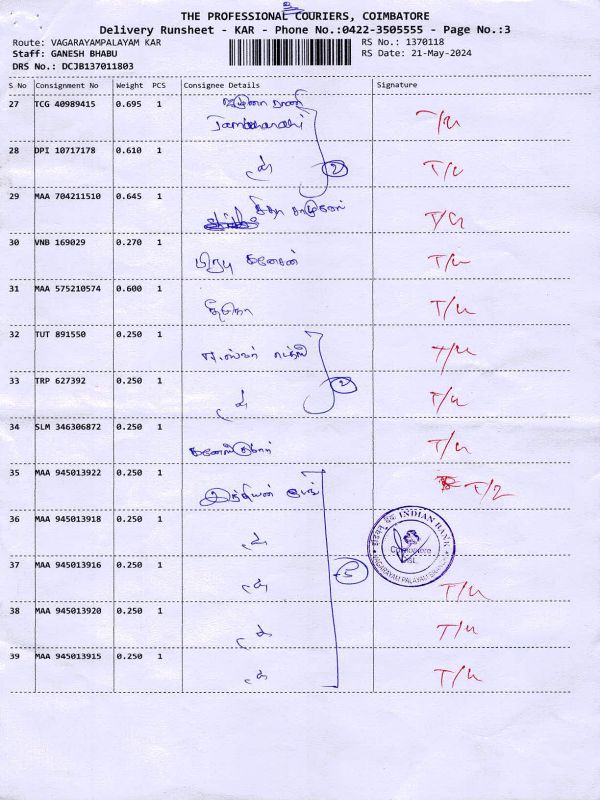 THE PROFESSIONAL COURIERS, COIMBATORE
Delivery Runsheet - KAR - Phone No.:0422-3505555 - Page No.:3
Route: VAGARAYAMPALAYAM KAR
RS No.: 1370118
Staff: GANESH BHABU
RS Date: 21-May-2024
DRS No.: DCJB137011803
S No Consignment No Weight PCS Consignee Details Signature
27 TCG 40989415 0.695 1 T/U
28 DPI 10717178 0.610 1 2 T/U
29 MAA 704211510 0.645 1 T/U
30 VNB 169029 0.270 1 பிரபு கணேசன் T/U
31 MAA 575210574 0.600 1 T/U
32 TUT 891550 0.250 1 T/U
33 TRP 627392 0.250 1 2 T/U
34 SLM 346306872 0.250 1 T/U
35 MAA 945013922 0.250 1 இந்தியன் பேங்க் T/2
36 MAA 945013918 0.250 1
INDIAN BANK
Coimbatore
Dist.
VAGARAYAMPALAYAM BRANCH
37 MAA 945013916 0.250 1 5 T/U
38 MAA 945013920 0.250 1 T/U
39 MAA 945013915 0.250 1 T/U